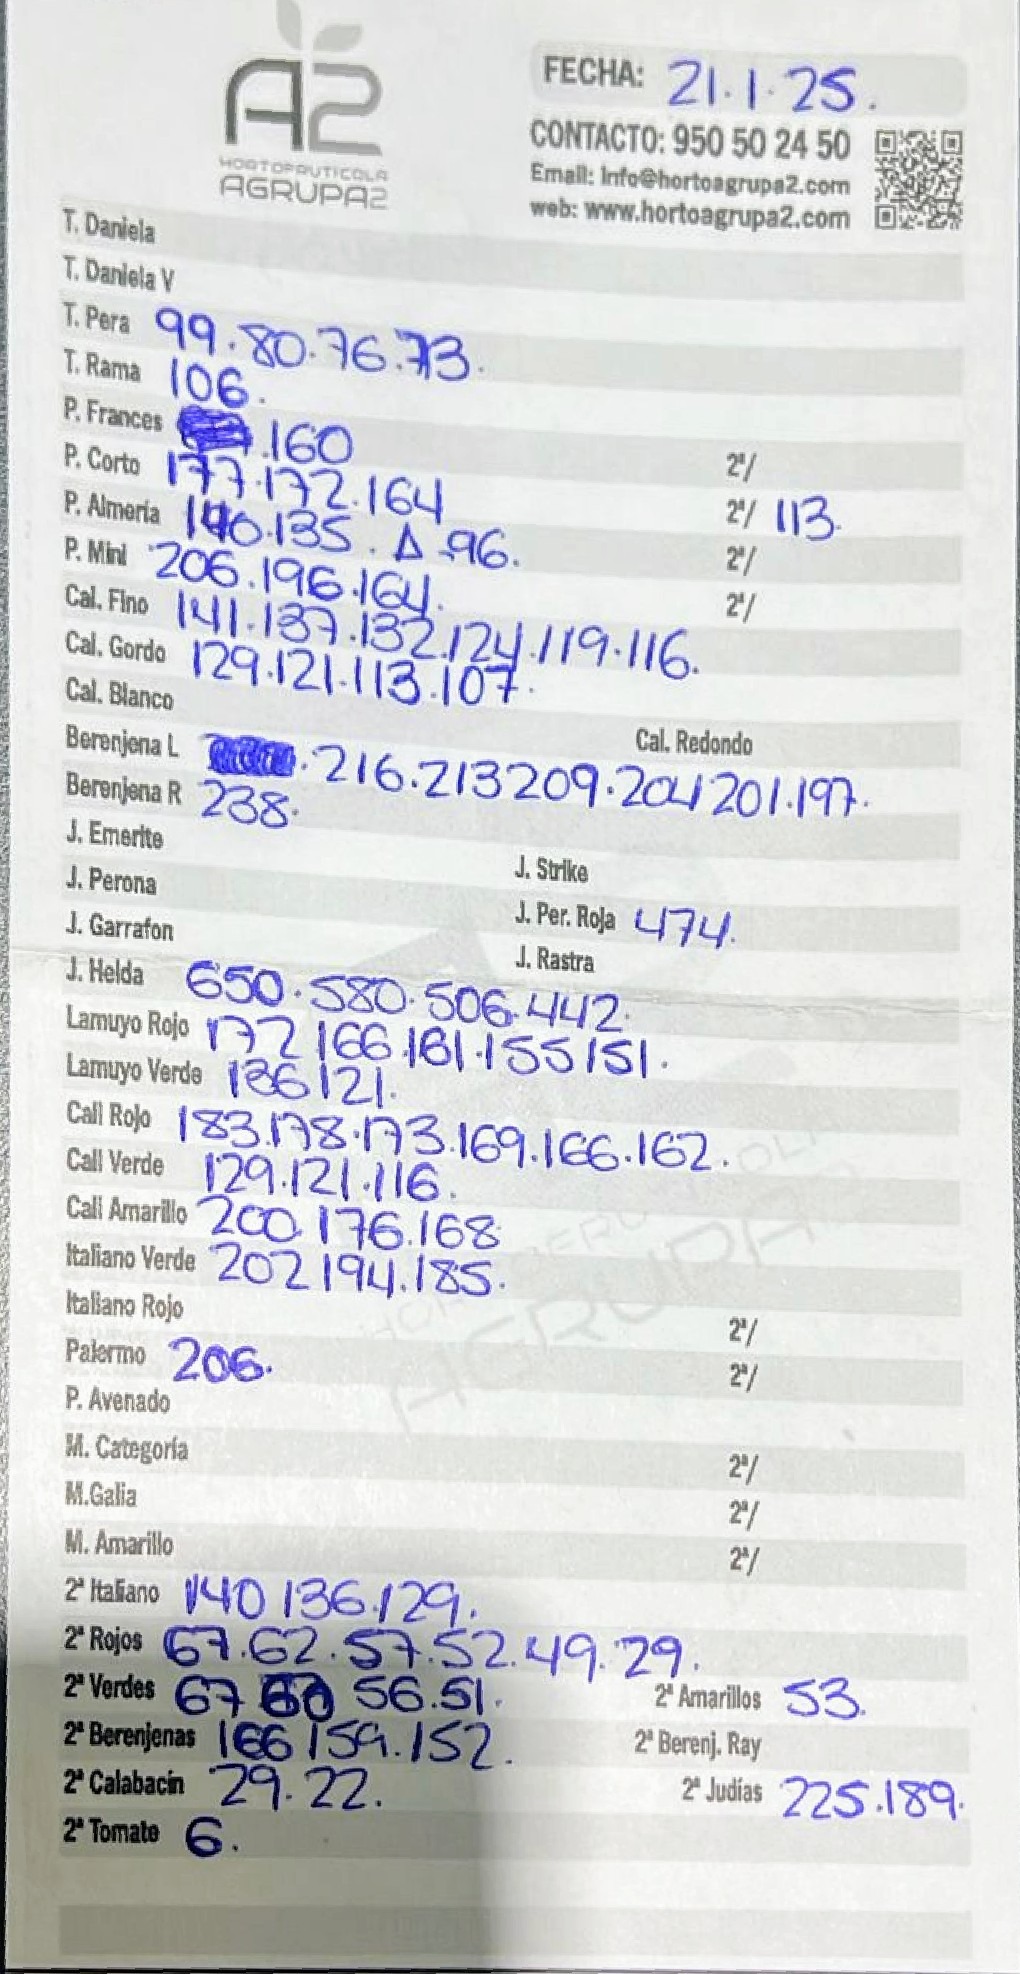 A2
HORTOFRUTICOLA
AGRUPA2
FECHA: 21.1.25.
CONTACTO: 950 50 24 50
Email: Info@hortoagrupa2.com
web: www.hortoagrupa2.com
T. Daniela
T. Daniela V
T. Pera 99.80.76.73.
T. Rama 106.
P. Frances .160 2ª/
P. Corto 177.172.164 2ª/ 113.
P. Almería 140.135. Δ 96. 2ª/
P. Mini 206.196.164. 2ª/
Cal. Fino 141.137.132.124.119.116.
Cal. Gordo 129.121.113.107.
Cal. Blanco Cal. Redondo
Berenjena L .216.213 209.204 201.197.
Berenjena R 238.
J. Emerite J. Strike
J. Perona J. Per. Roja 474.
J. Garrafon J. Rastra
J. Helda 650.580.506.442.
Lamuyo Rojo 172 166.161.155 151.
Lamuyo Verde 136 121.
Cali Rojo 183.178.173.169.166.162.
Cali Verde 129.121.116.
Cali Amarillo 200.176.168
Italiano Verde 202 194.185.
Italiano Rojo 2ª/
Palermo 206. 2ª/
P. Avenado
M. Categoría 2ª/
M.Galia 2ª/
M. Amarillo 2ª/
2ª Italiano 140 136.129.
2ª Rojos 67.62.57.52.49.29.
2ª Verdes 67 60 56.51. 2ª Amarillos 53.
2ª Berenjenas 166 159.152. 2ª Berenj. Ray
2ª Calabacín 29.22. 2ª Judías 225.189.
2ª Tomate 6.